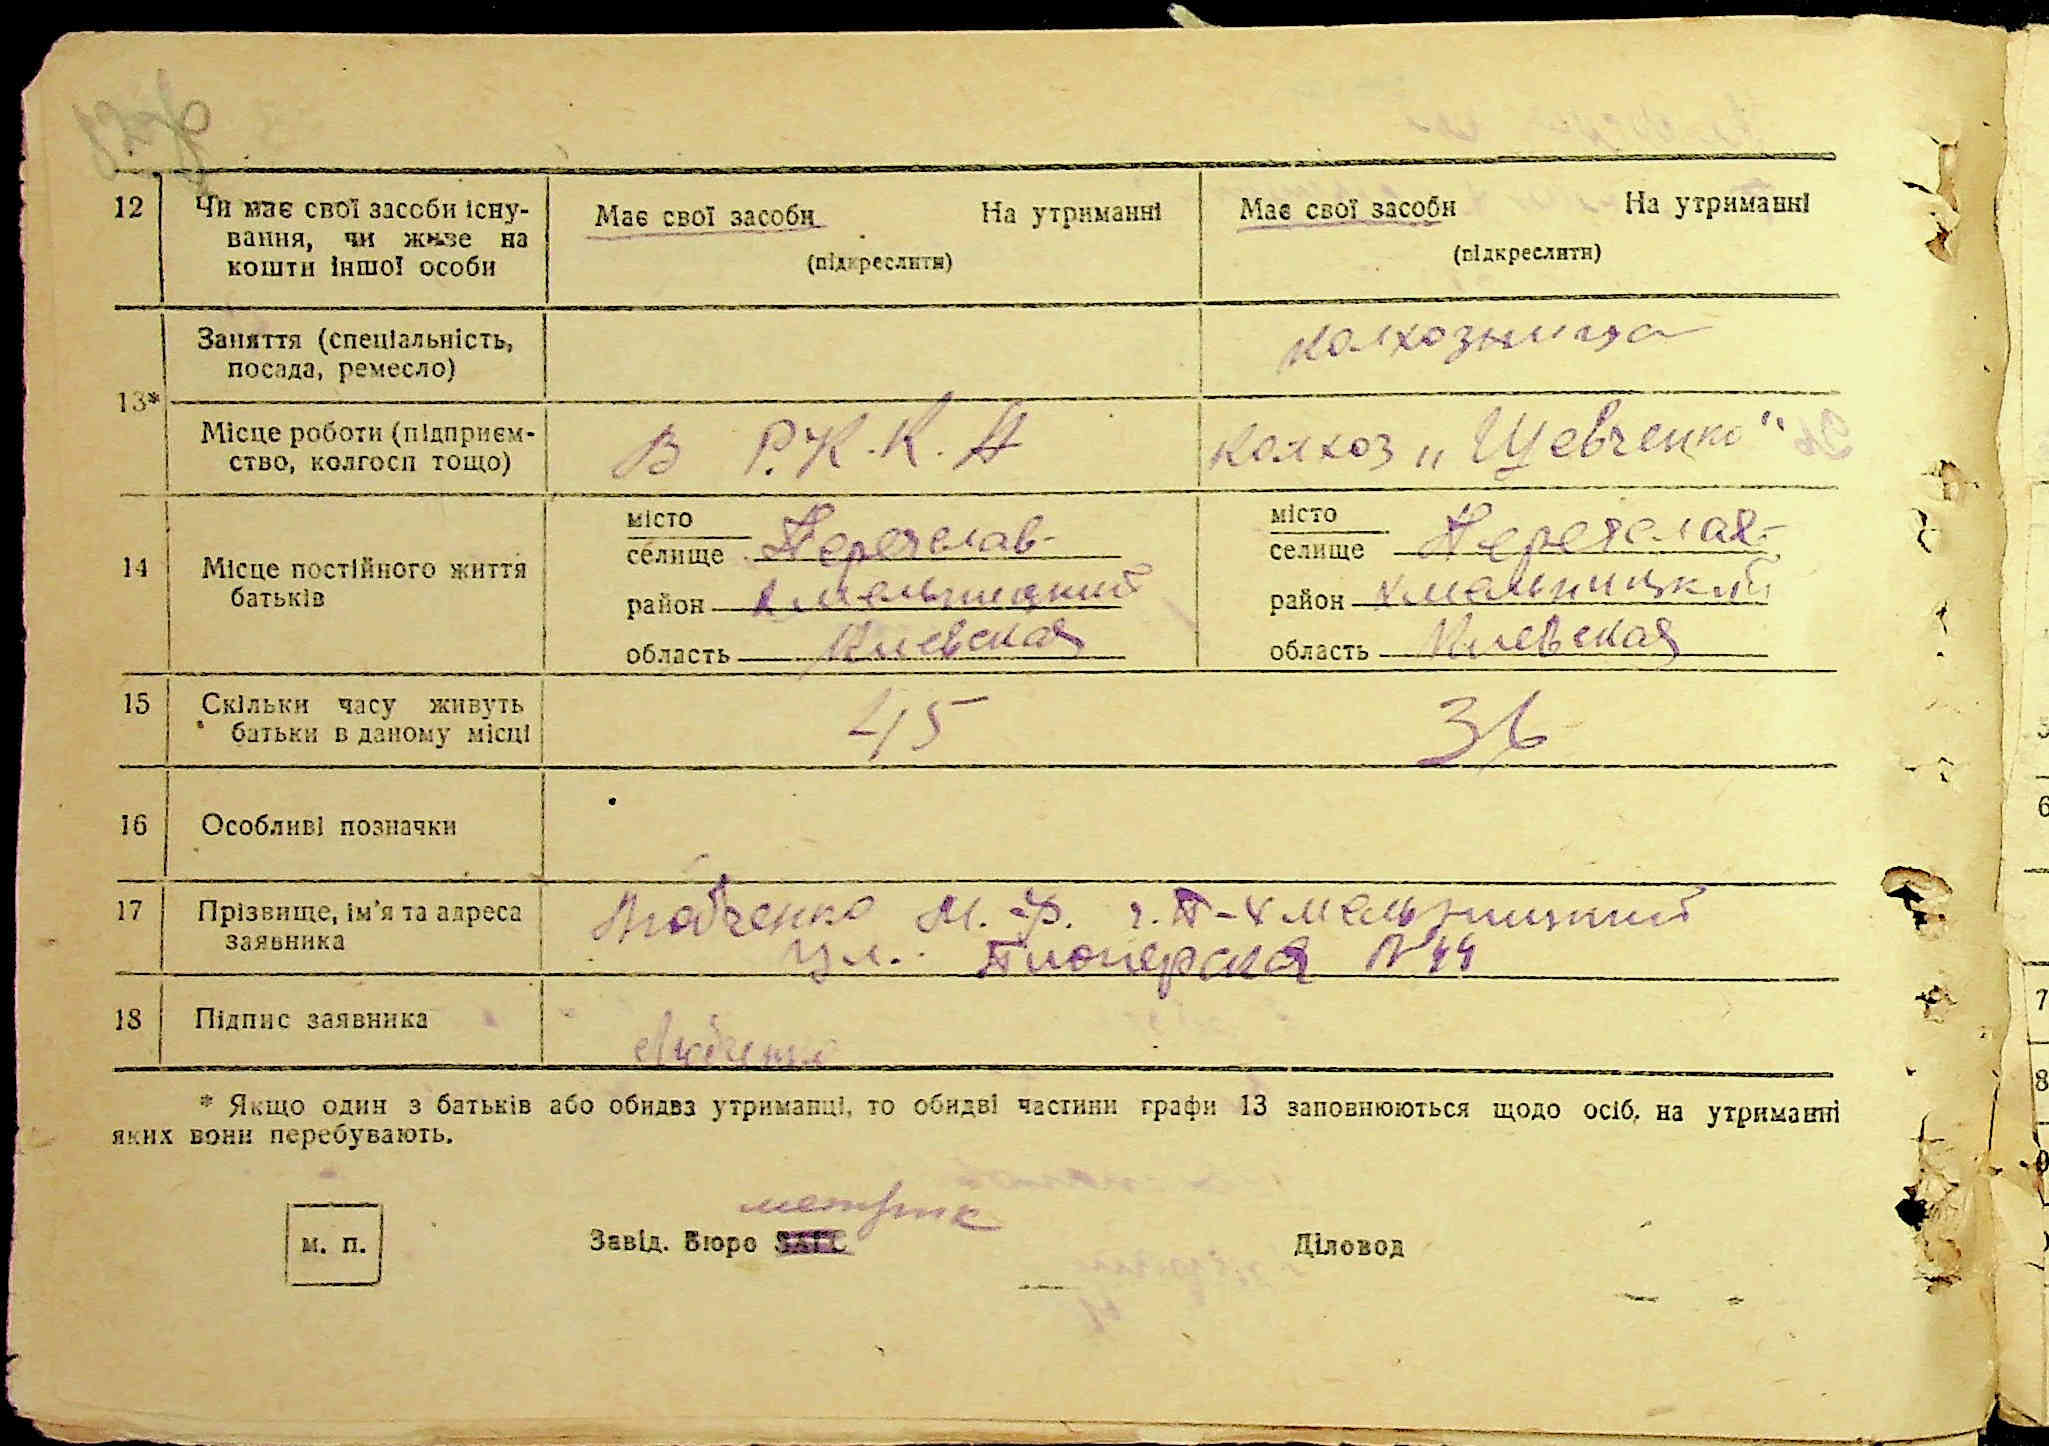 12 Чи має свої засоби існу- Має свої засоби На утриманні Має свої засоби На утриманні
вання, чи живе на (підкреслити) (підкреслити)
кошти іншої особи
Заняття (спеціальність, колхозница
посада, ремесло)
13*
Місце роботи (підприєм- В Р.К.К.А колхоз „Шевченко"
ство, колгосп тощо)
місто Переяслав- місто Переяслав-
селище селище
14 Місце постійного життя
батьків
район Хмельницкий район Хмельницкий
область Киевская область Киевская
15 Скільки часу живуть 45 36
батьки в даному місці
16 Особливі позначки
17 Прізвище, ім'я та адреса Любченко М. Ф. г. П-Хмельницкий
заявника ул. Пионерская № 44
18 Підпис заявника Любченко
* Якщо один з батьків або обидва утриманці, то обидві частини графи 13 заповнюються щодо осіб, на утриманні
яких вони перебувають.
метрик
м. п. Завід. Бюро ЗАГС Діловод